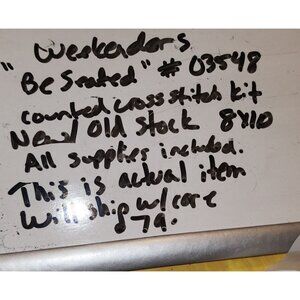 Weekenders
"Be Seated" # 03548
counted cross stitch kit
New/Old Stock 8x10
All supplies included.
This is actual item
Will ship w/care
79.